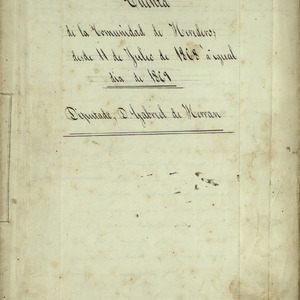 de la Comunidad de Herederos
desde 11 de Julio de 1868 a igual
dia de 1869
Diputado, D. Gabriel de Herran